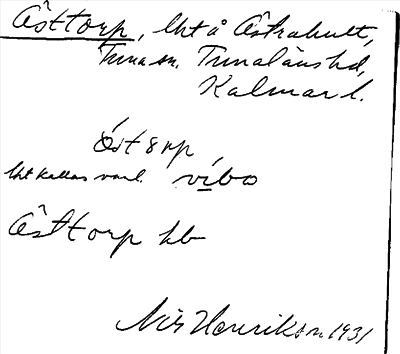 Åsttorp, lht å Åstrahult,
Tuna sn. Tunaläns hd,
Kalmar l.
óst örp
lht kallas vanl. víbo
Åsttorp kb
Nils Henrikson 1931